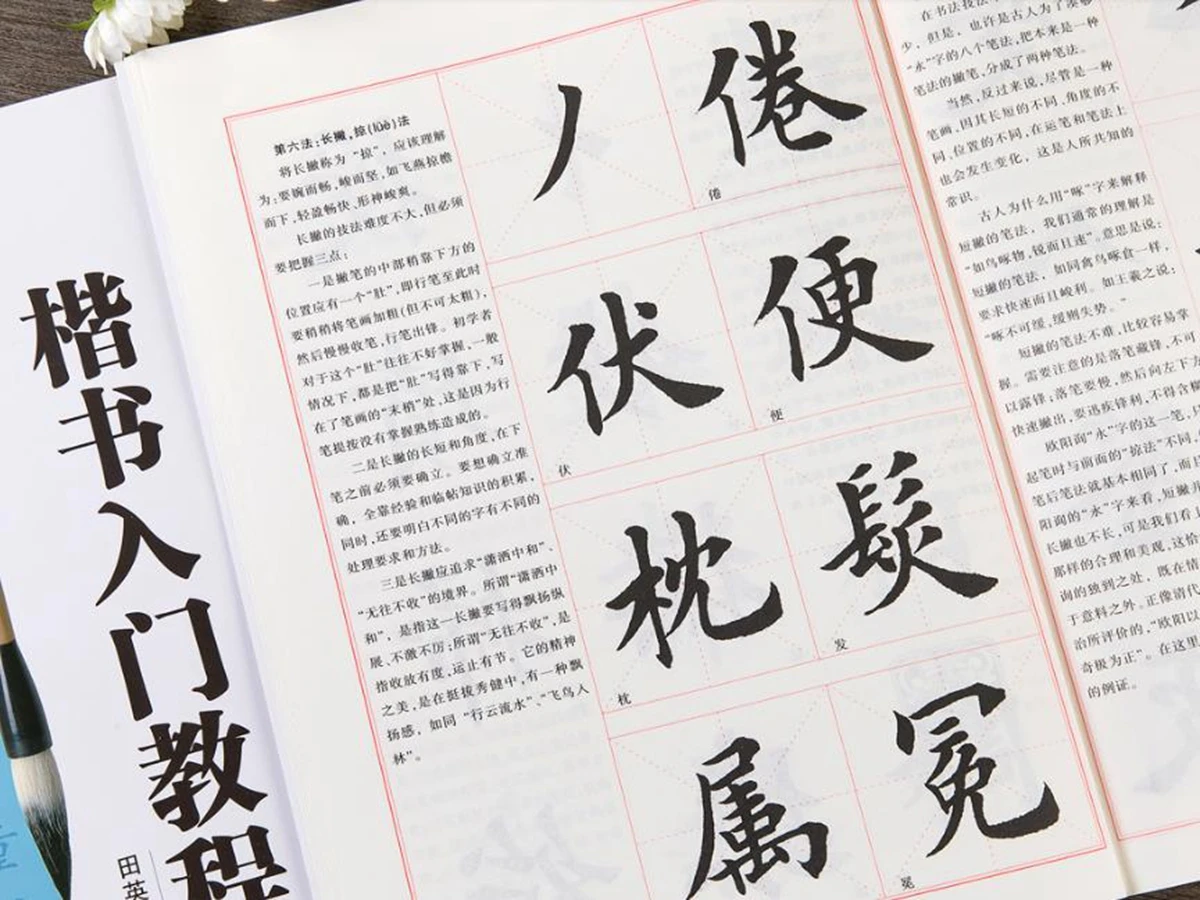 楷书入门教程
田英
第六法:长撇,掠(lüè)法
将长撇称为“掠”,应该理解
为:要婉而畅,峻而坚,如飞燕掠檐
而下,轻盈畅快、形神峻爽。
长撇的技法难度不大,但必须
要把握三点:
一是撇笔的中部稍靠下方的
位置应有一个“肚”,即行笔至此时
要稍稍将笔画加粗(但不可太粗),
然后慢慢收笔,行笔出锋。初学者
对于这个“肚”往往不好掌握,一般
情况下,都是把“肚”写得靠下,写
在了笔画的“末梢”处,这是因为行
笔提按没有掌握熟练造成的。
二是长撇的长短和角度,在下
笔之前必须要确立。要想确立准
确,全靠经验和临帖知识的积累,
同时,还要明白不同的字有不同的
处理要求和方法。
三是长撇应追求“潇洒中和”、
“无往不收”的境界。所谓“潇洒中
和”,是指这一长撇要写得飘扬纵
展、不激不厉;所谓“无往不收”,是
指收放有度,运止有节。它的精神
之美,是在挺拔秀健中,有一种飘
扬感,如同“行云流水”、“飞鸟入
林”。
倦
倦
伏
便
伏
便
枕
髮
枕
发
属
冕
冕
在书法技法
少,但是,也许是古人为了凑够
“永”字的八个笔法,把本来是一种
笔法的撇笔,分成了两种笔法。
当然,反过来说,尽管是一种
笔画,因其长短的不同、角度的不
同、位置的不同,在运笔和笔法上
也会发生变化,这是人所共知的
常识。
古人为什么用“啄”字来解释
短撇的笔法,我们通常的理解是
“如鸟啄物,锐而且速”。意思是说:
短撇的笔法,如同禽鸟啄食一样,
要求快速而且峻利。如王羲之说:
“啄不可缓,缓则失势。”
短撇的笔法不难,比较容易掌
握。需要注意的是落笔藏锋,不可
以露锋,落笔要慢,然后向左下方
快速撇出,要迅疾锋利,不得含糊
欧阳询“永”字的这一笔,
起笔时与前面的“掠法”不同,
笔后笔法就基本相同了,而且
阳询的“永”字来看,短撇并
长撇也不长,可是我们看
那样的合理和美观,这恰
询的独到之处,既在情
于意料之外。正像清代
治所评价的,“欧阳以
奇极为正”。在这里
的例证。